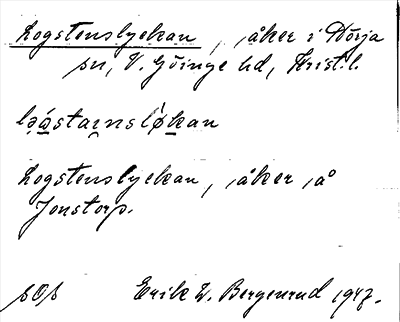 Logstenslyckan, åker i Nörja
sn, V. Göinge hd, Krist. l.
Logstenslyckan, åker, å
Jonstorp.
sOs Erik W. Bergenrud 1947.